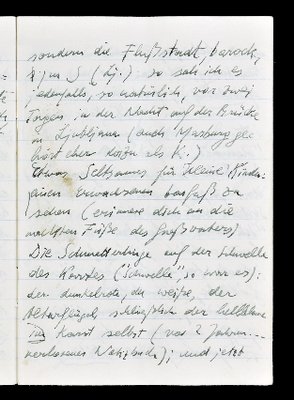 sondern die Flußstadt, barock,
S (Lj.) : so sah ich es
jedenfalls, so natürlich, vor zwei
Tagen, in der Nacht auf der Brücke
in Ljubljana (auch Marburg ge
hört eher dazu als K.)
Etwas Seltsames für kleine Kinder:
einen Erwachsenen barfuß zu
sehen (erinnere dich an die
Füße des Großvaters)
Die Schmetterlinge auf der Schwelle
des Karstes ("Schwelle", so war es):
der dunkelrote, der weiße, der
schließlich der hellblaue
Im Karst selbst (vor 2 Jahren...
verlorenes Notizbuch); und jetzt